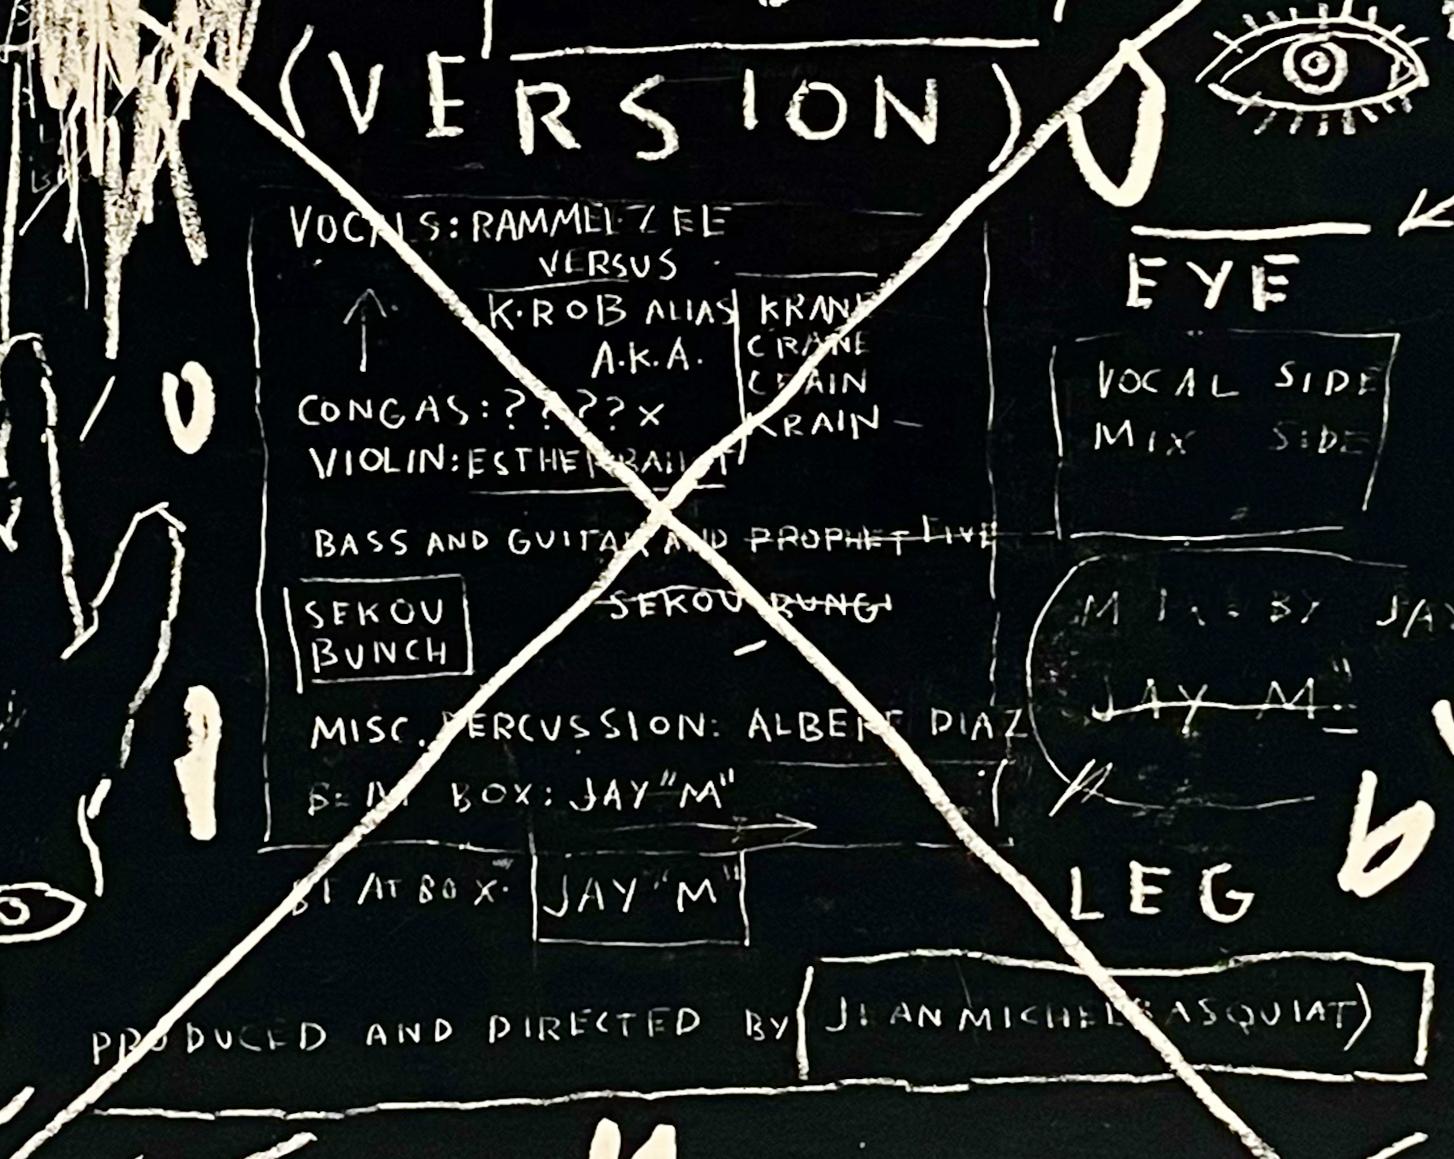 (VERSION)
VOCALS: RAMMELLZEE
VERSUS
K-ROB ALIAS
A.K.A.
KRANE
CRANE
CRAIN
KRAIN
CONGAS: ????X
VIOLIN: ESTHER
BASS AND GUITAR AND PROPHET FIVE
SEKOU BUNGI
SEKOU
BUNCH
MISC. PERCUSSION: ALBERT DIAZ
BOX: JAY "M"
BOX. JAY "M"
PRODUCED AND DIRECTED BY (JEAN MICHEL BASQUIAT)
EYE
VOCAL SIDE
MIX SIDE
BY
JAY M."
LEG